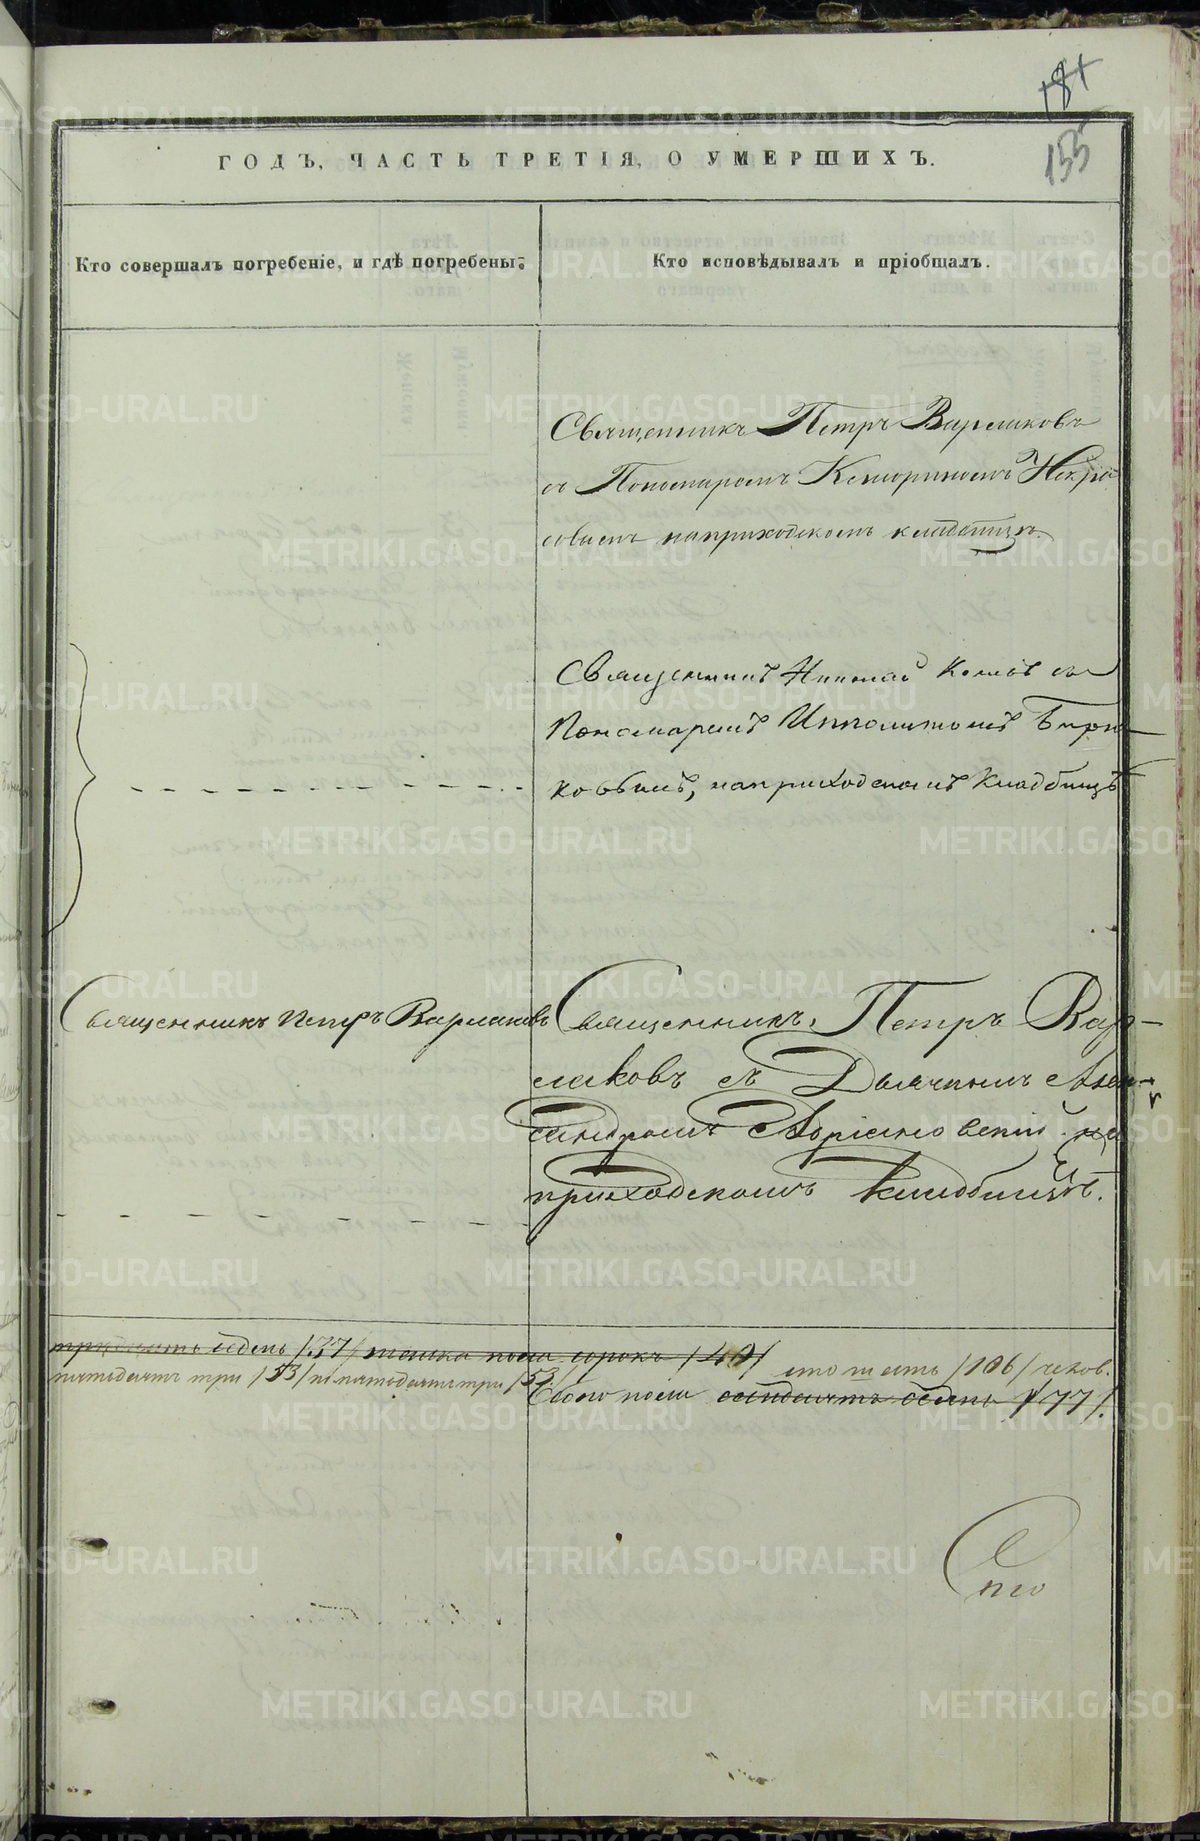 181
153
ГОДЪ, ЧАСТЬ ТРЕТІЯ, О УМЕРШИХЪ.
Кто совершалъ погребеніе, и гдѣ погребены:
Кто исповѣдывалъ и пріобщалъ.
Священникъ Петръ Варлаковъ
съ Пономаремъ Некра
совымъ на приходскомъ кладбищѣ.
Священникъ Николай Поповъ съ
Пономаремъ Ипполитомъ Бирю
ковымъ, на приходскомъ кладбищѣ
Священникъ Петръ Варлаковъ
Священникъ Петръ Вар-
лаковъ съ Дьячкомъ Алек-
сандромъ на
приходскомъ кладбищѣ.
тридцать седмь /37/ женска пола сорокъ /40/
пятьдесятъ три /53/ и пятьдесятъ три /53/
сто шесть /106/ челов.
Обоего пола семьдесятъ седмь /77/.
METRIKI.GASO-URAL.RU